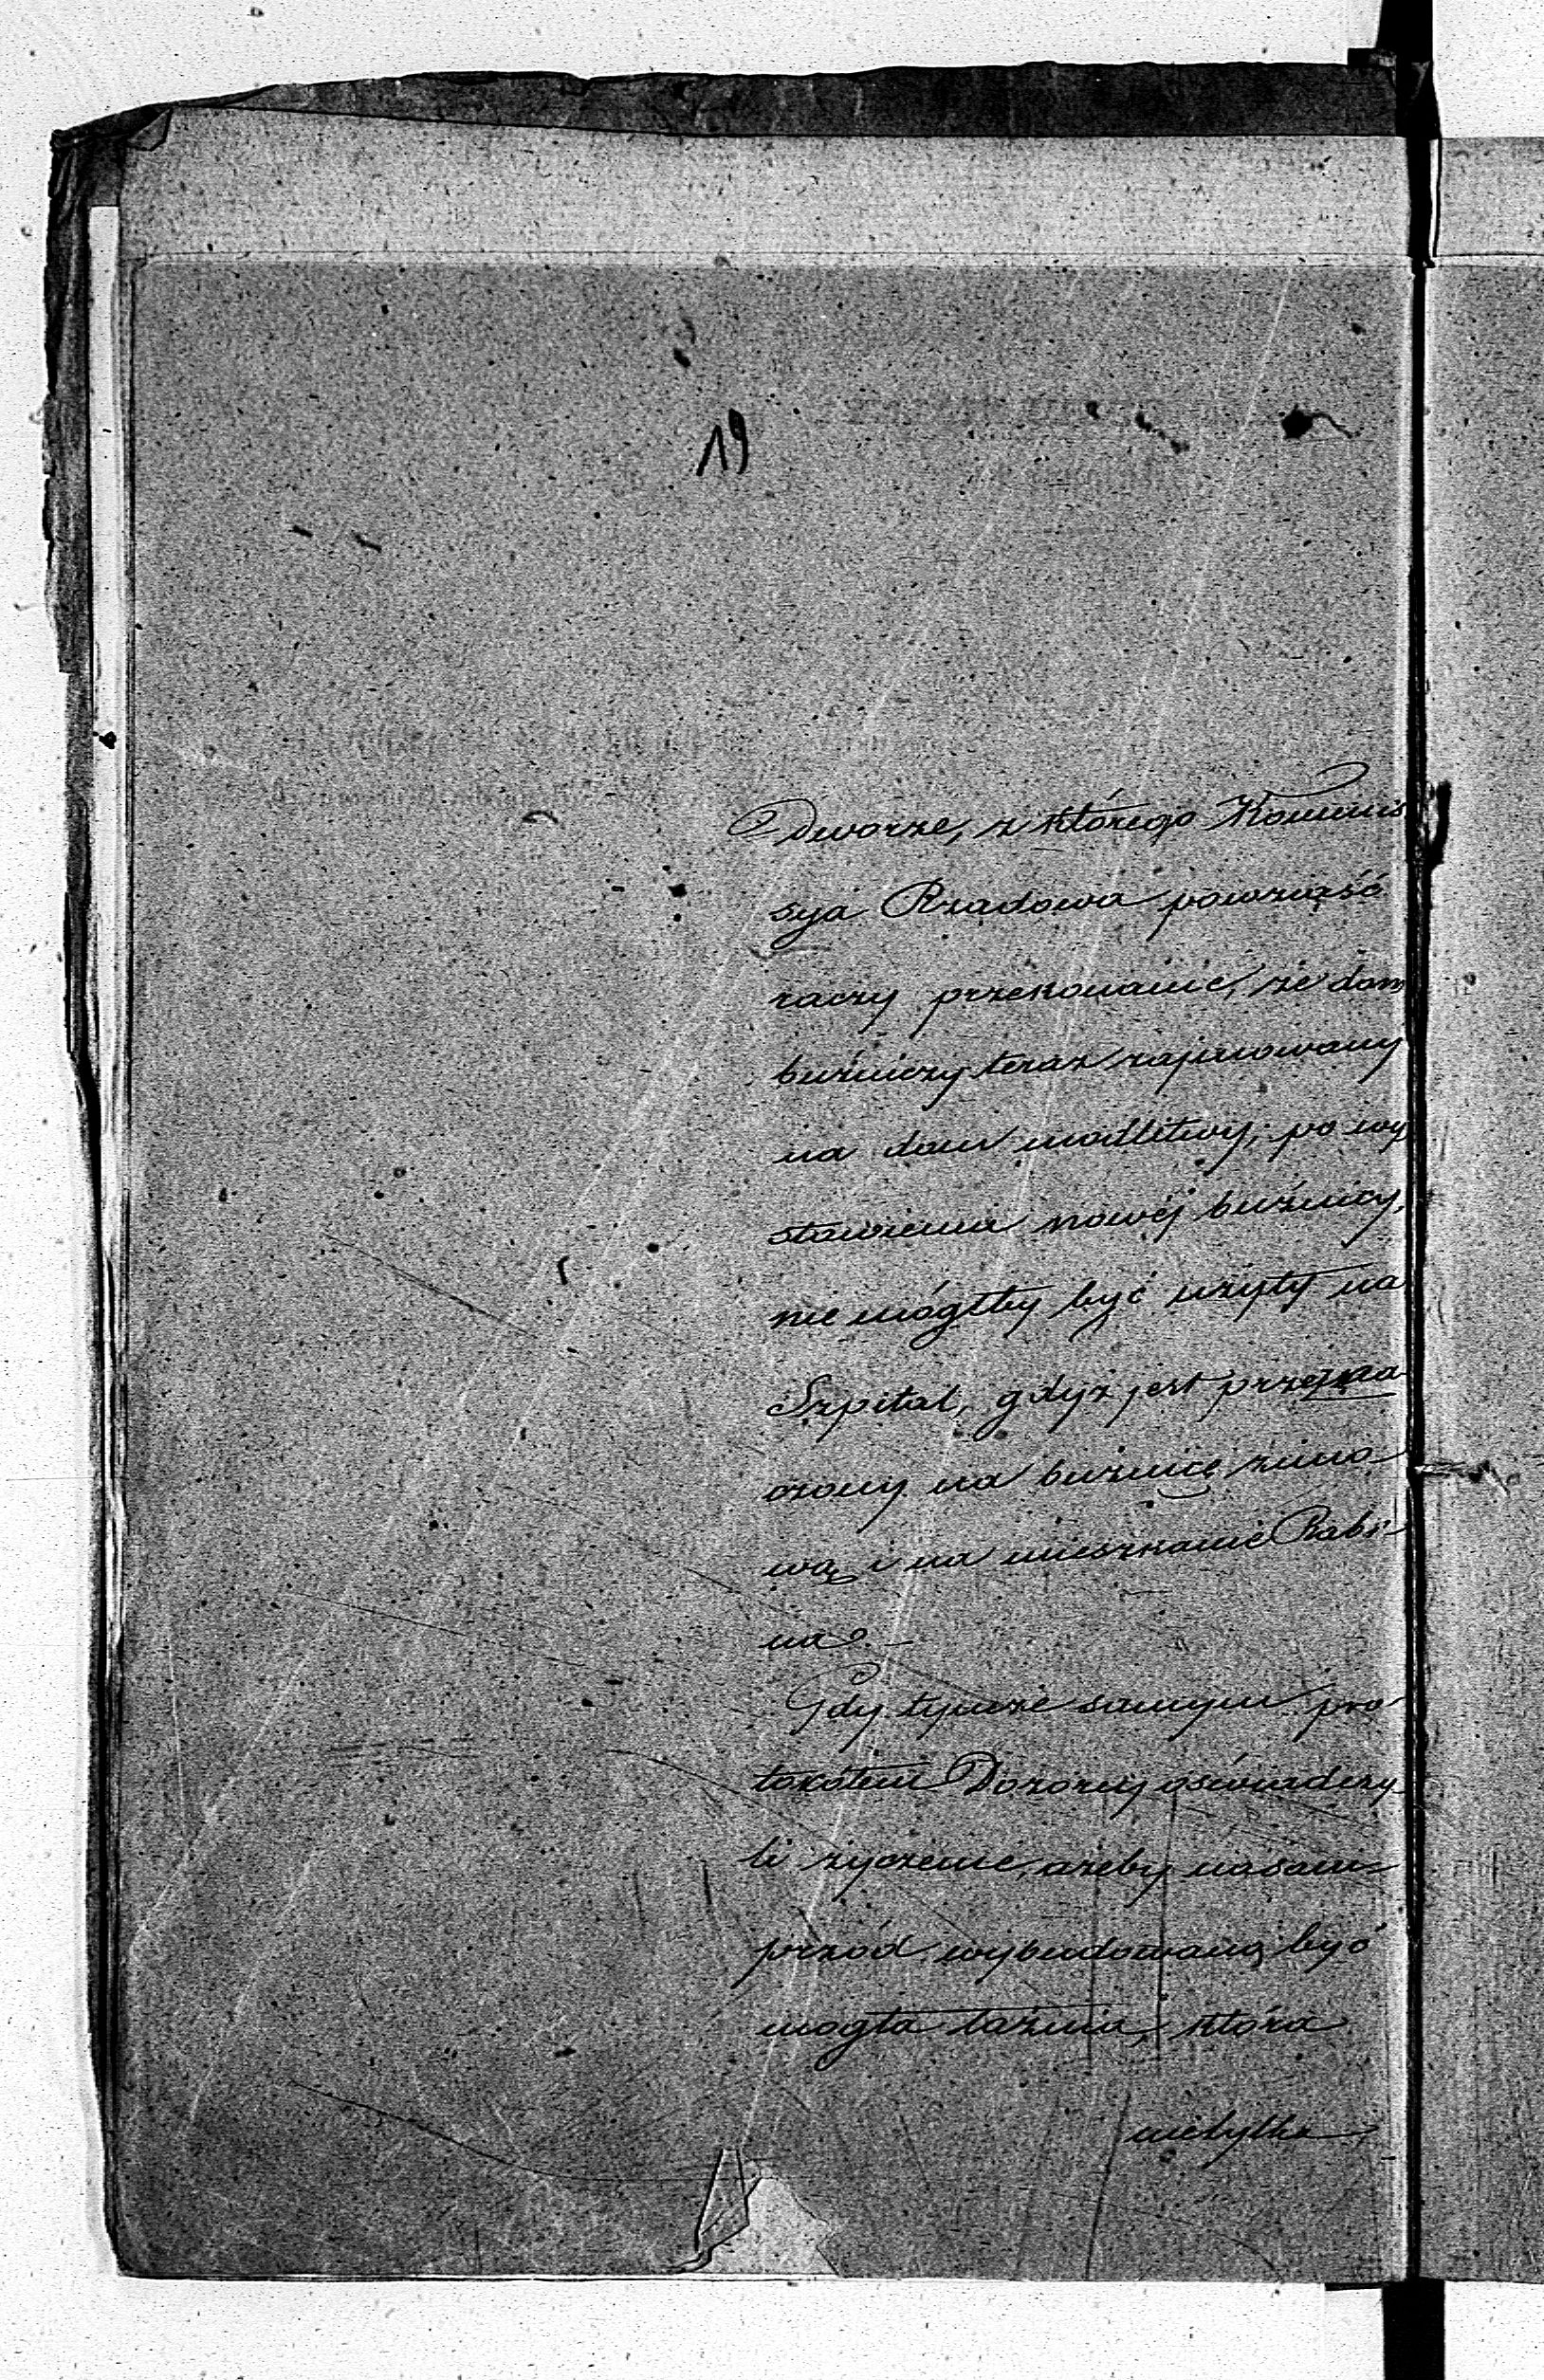 19
Dworze, z którego Kommis
syja Rządowa powziąść
raczy przekonanie, że dom
buźniczy teraz zajmowany
na dom modlitwy; po wy
stawieniu nowéj buźnicy,
nie mógłby być użyty na
Szpital, gdyż jest przezna
czony na buźnicę zimo
wą i na mieszkanie Rabi-
na. –
Gdy tymże samym pro
tokółem Dozorcy oświadczy
li życzenie, ażeby nasam
przód wybudowaną być
mogła łaźnia, która
nietylko